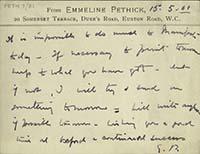 PETH 7/21
From EMMELINE PETHICK, 15-5-01
20 SOMERSET TERRACE, DUKE'S ROAD, EUSTON ROAD, W.C.
It is impossible to do much to
today - If necessary to
keep to what you have got - but
if not, I will try & send on
something tomorrow - Will write again
if possible tomorrow - Wishing you a good
time at & continued success
E. P.